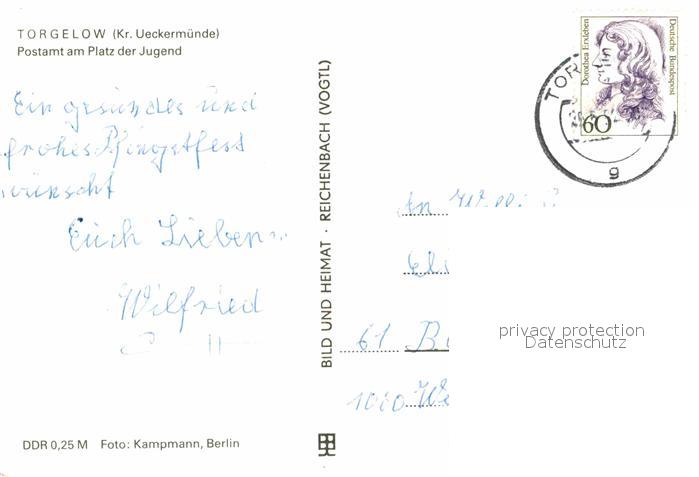 TORGELOW (Kr. Ueckermünde)
Postamt am Platz der Jugend
Ein gesundes und
frohes Pfingstfest
wünscht
Euch Lieben
Wilfried
DDR 0,25 M Foto: Kampmann, Berlin
BILD UND HEIMAT · REICHENBACH (VOGTL)
Dorothea Erxleben
Deutsche Bundespost
60
TOR
g
An
61 B
1000 We
privacy protection
Datenschutz